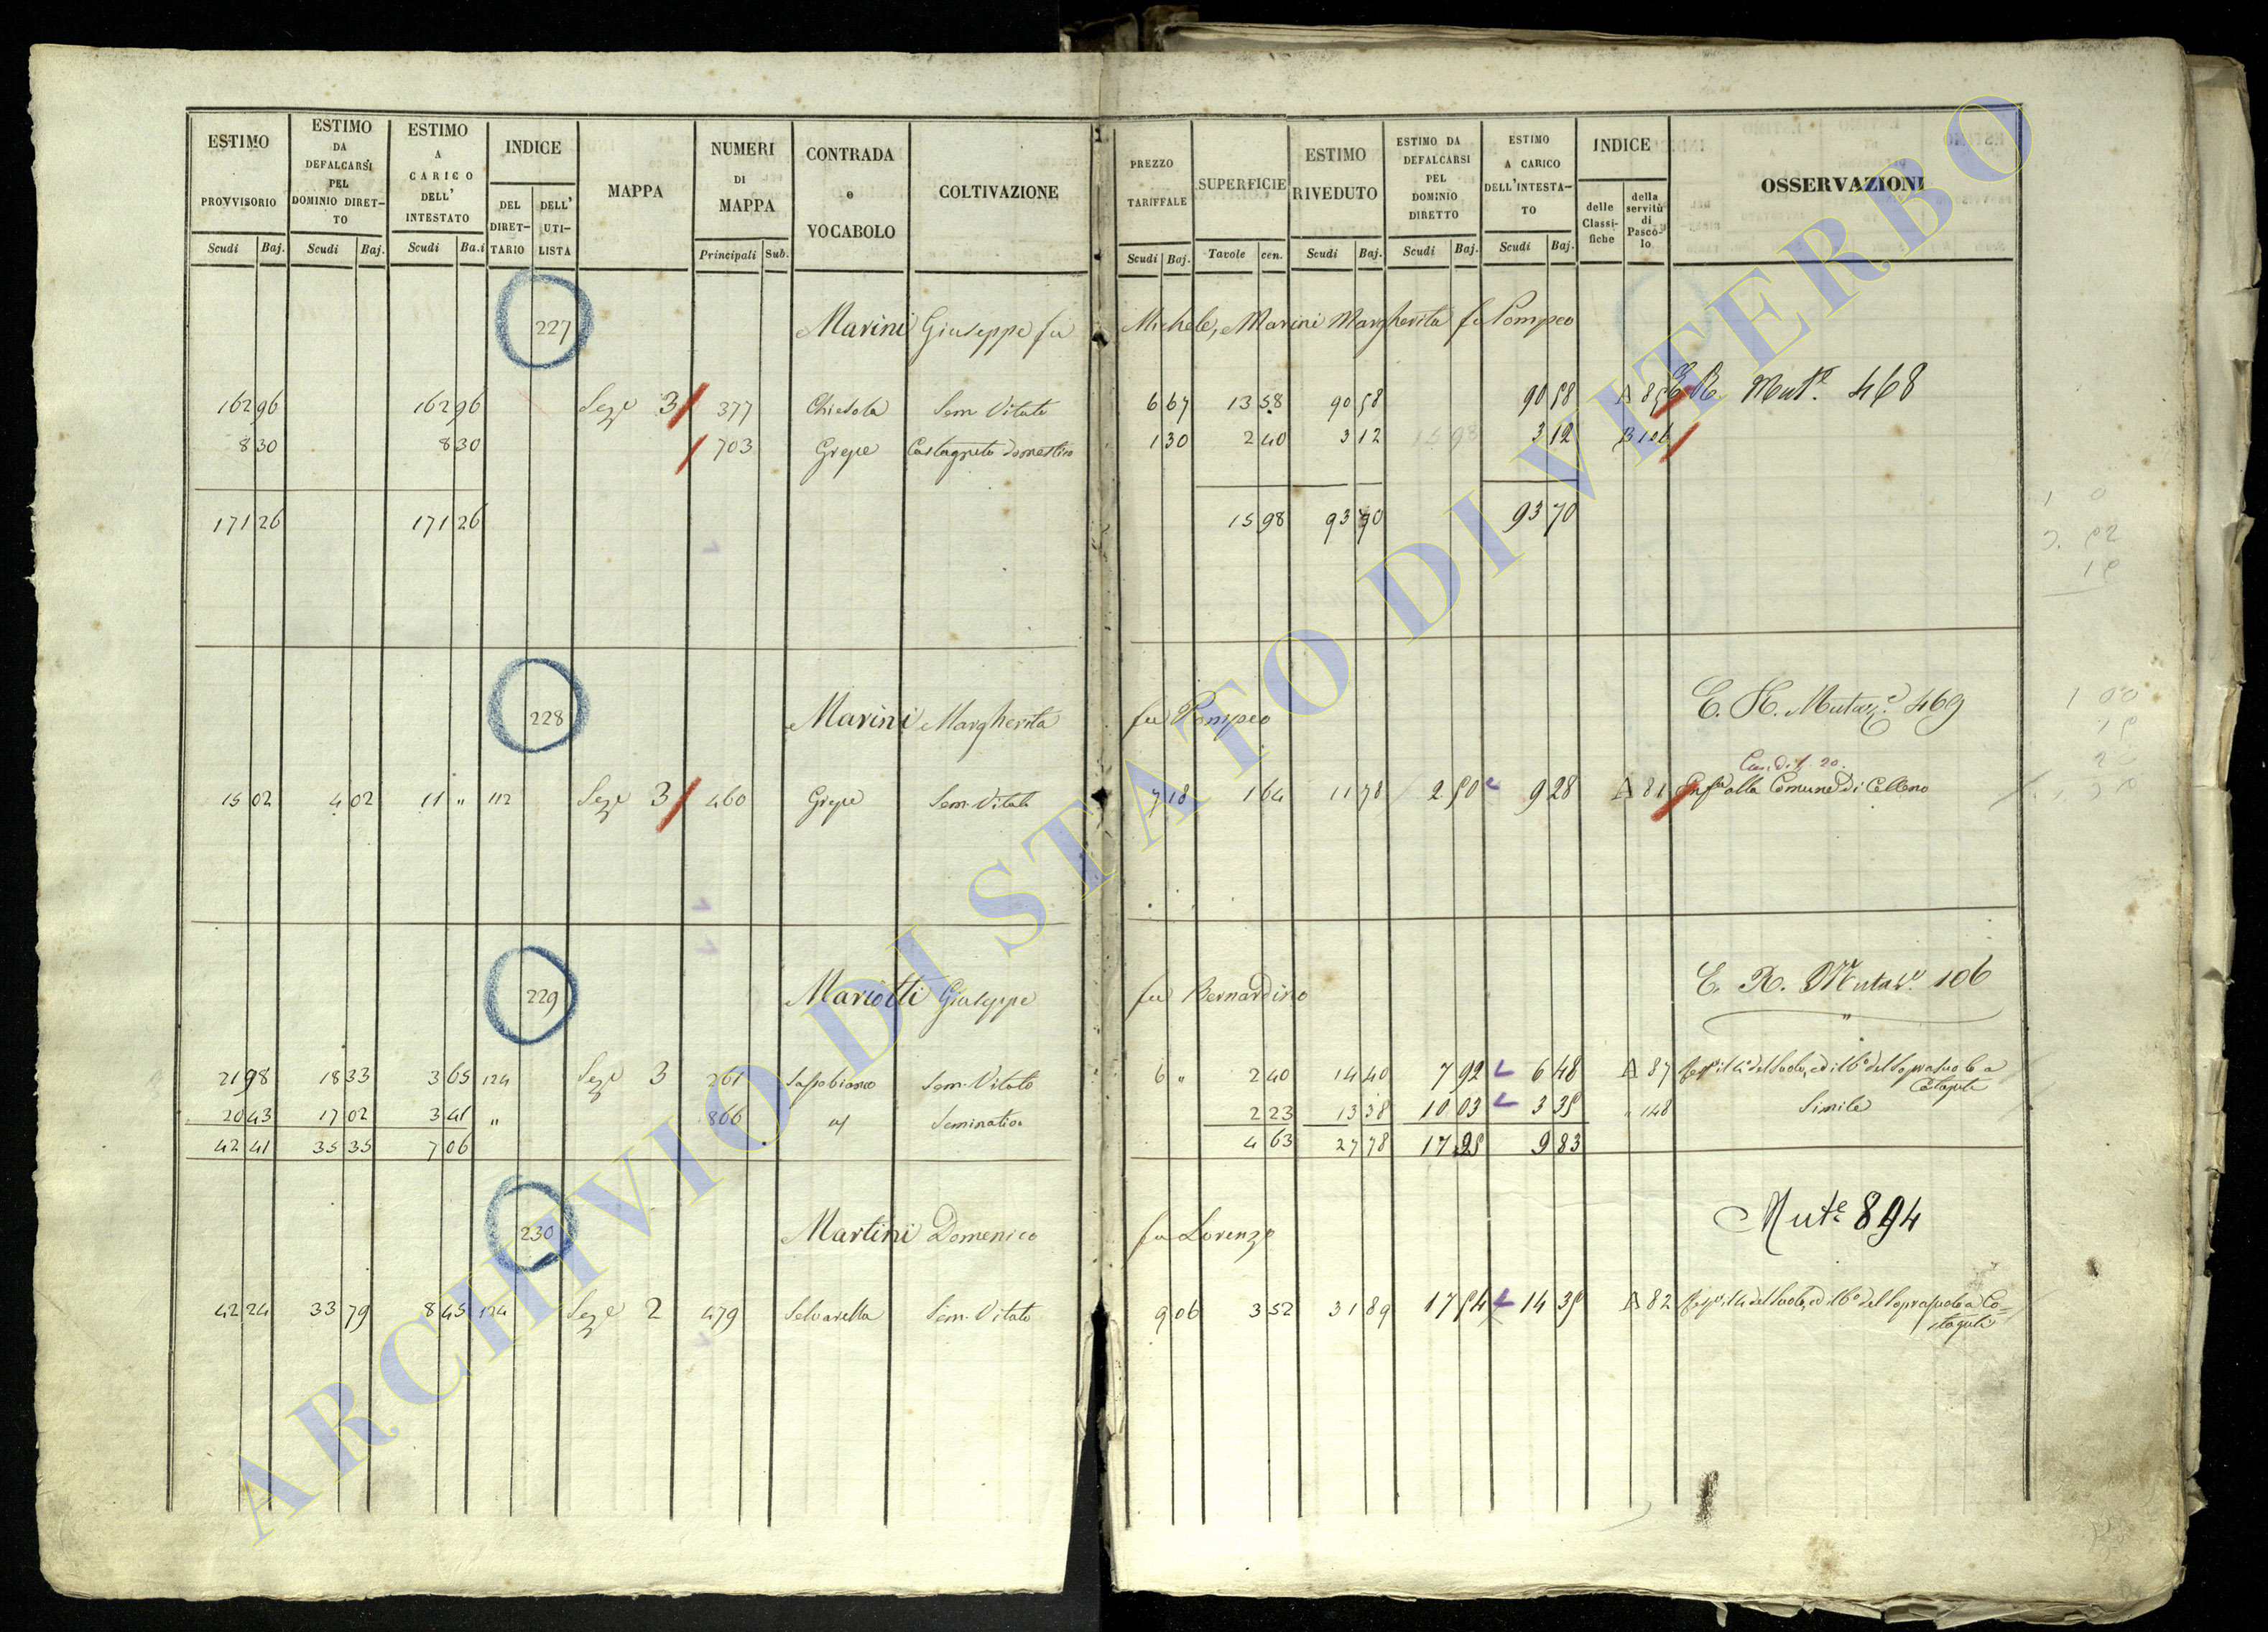 ESTIMO PROVVISORIO Scudi Baj.
ESTIMO DA DEFALCARSI PEL DOMINIO DIRET-TO Scudi Baj.
ESTIMO A CARICO DELL' INTESTATO Scudi Ba.i
INDICE DEL DIRET-TARIO DELL' UTI-LISTA
MAPPA
NUMERI DI MAPPA Principali Sub.
CONTRADA e VOCABOLO
COLTIVAZIONE
PREZZO TARIFFALE Scudi Baj.
SUPERFICIE Tavole cen.
ESTIMO RIVEDUTO Scudi Baj.
ESTIMO DA DEFALCARSI PEL DOMINIO DIRETTO Scudi Baj.
ESTIMO A CARICO DELL'INTESTA-TO Scudi Baj.
INDICE delle Classi-fiche della servitù di Pasco-lo
OSSERVAZIONI
227 Marini Giuseppe fu Michele, Marini Margherita fu Pompeo
E. R. Mut.e 468
162 96 162 96 Seze 3 377 Chiesola Sem. Vitato 6 67 13 58 90 58 90 58 A 85
8 30 8 30 703 Grepe Castagneto domestico 1 30 2 40 3 12 3 12 B 106
171 26 171 26 15 98 93 70 93 70
228 Marini Margherita fu Pompeo
E. R. Mutaz.e 469
15 02 4 02 11 " 112 Seze 3 460 Grepe Sem. Vitato 7 18 1 64 11 78 2 50 9 28 A 81 alla Comune di Celleno
229 Mariotti Giuseppe fu Bernardino
E. R. Mutaz.e 106
21 98 18 33 3 65 124 Seze 3 261 Sem. Vitato 6 " 2 40 14 40 7 92 6 48 A 87
20 43 17 02 3 41 " 866 Seminativo 2 23 13 38 10 03 3 35 " 148 Simile
42 41 35 35 7 06 4 63 27 78 17 95 9 83
230 Martini Domenico fu Lorenzo
Mut.e 894
42 24 33 79 8 45 124 Seze 2 479 Selvarella Sem. Vitato 9 06 3 52 31 89 17 54 14 35 A 82
ARCHIVIO DI STATO DI VITERBO